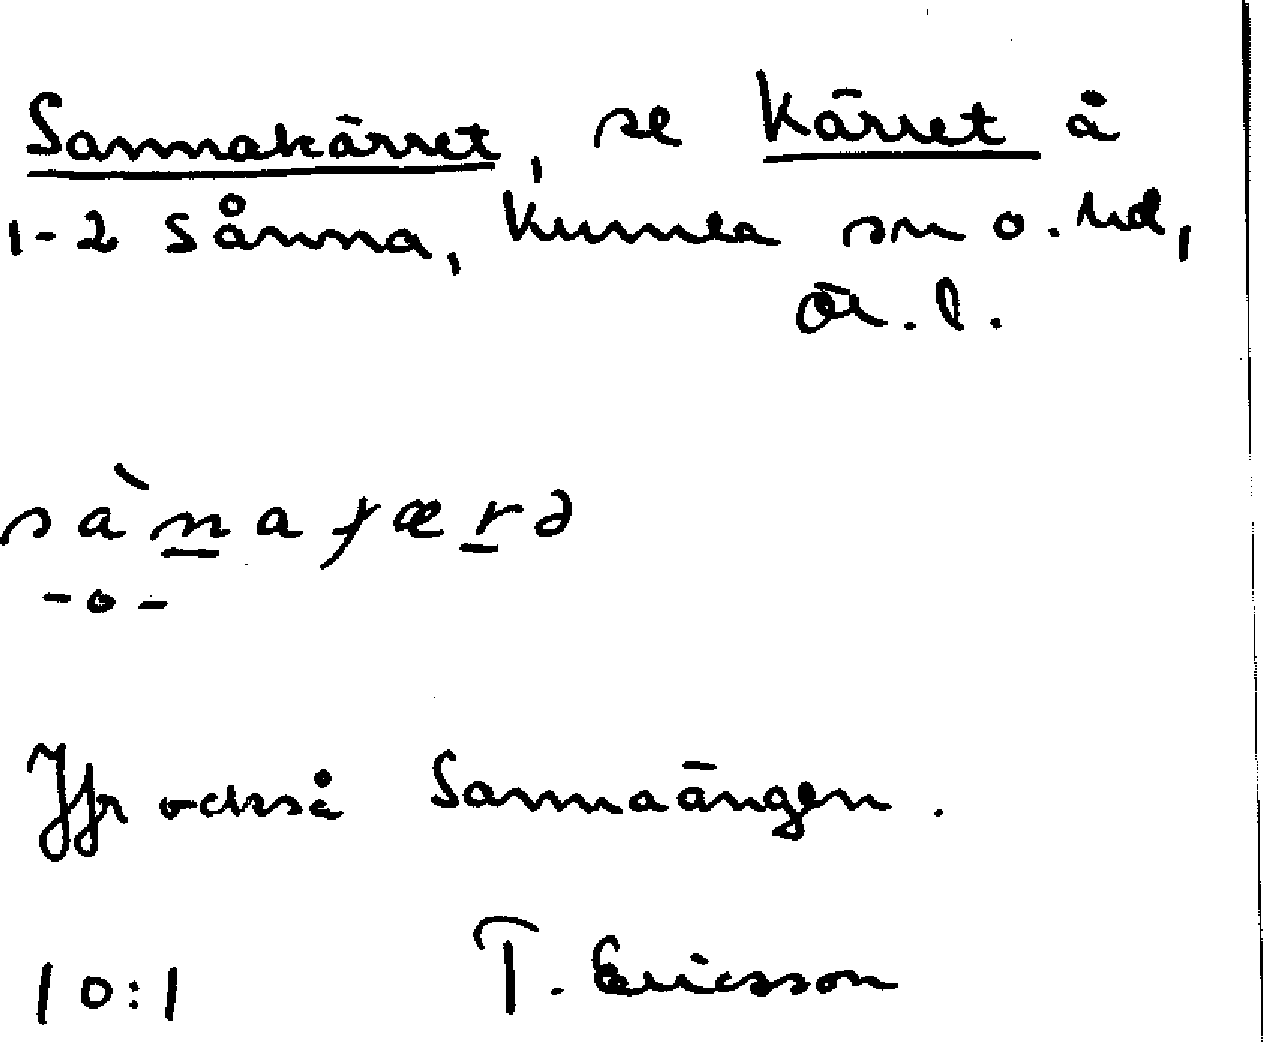 Sannakärret, se Kärret å
1-2 Sånna, Kumla sn o. hd,
Ör. l.
sànaɟærə
-o-
Jfr också Sannaängen.
10:1 T. Ericsson